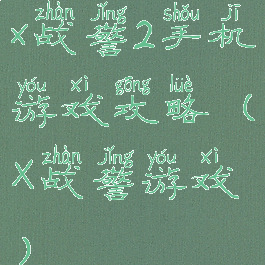 zhàn jǐng shǒu jī
x战警2手机
yóu xì gōng lüè
游戏攻略(
zhàn jǐng yóu xì
X战警游戏
)